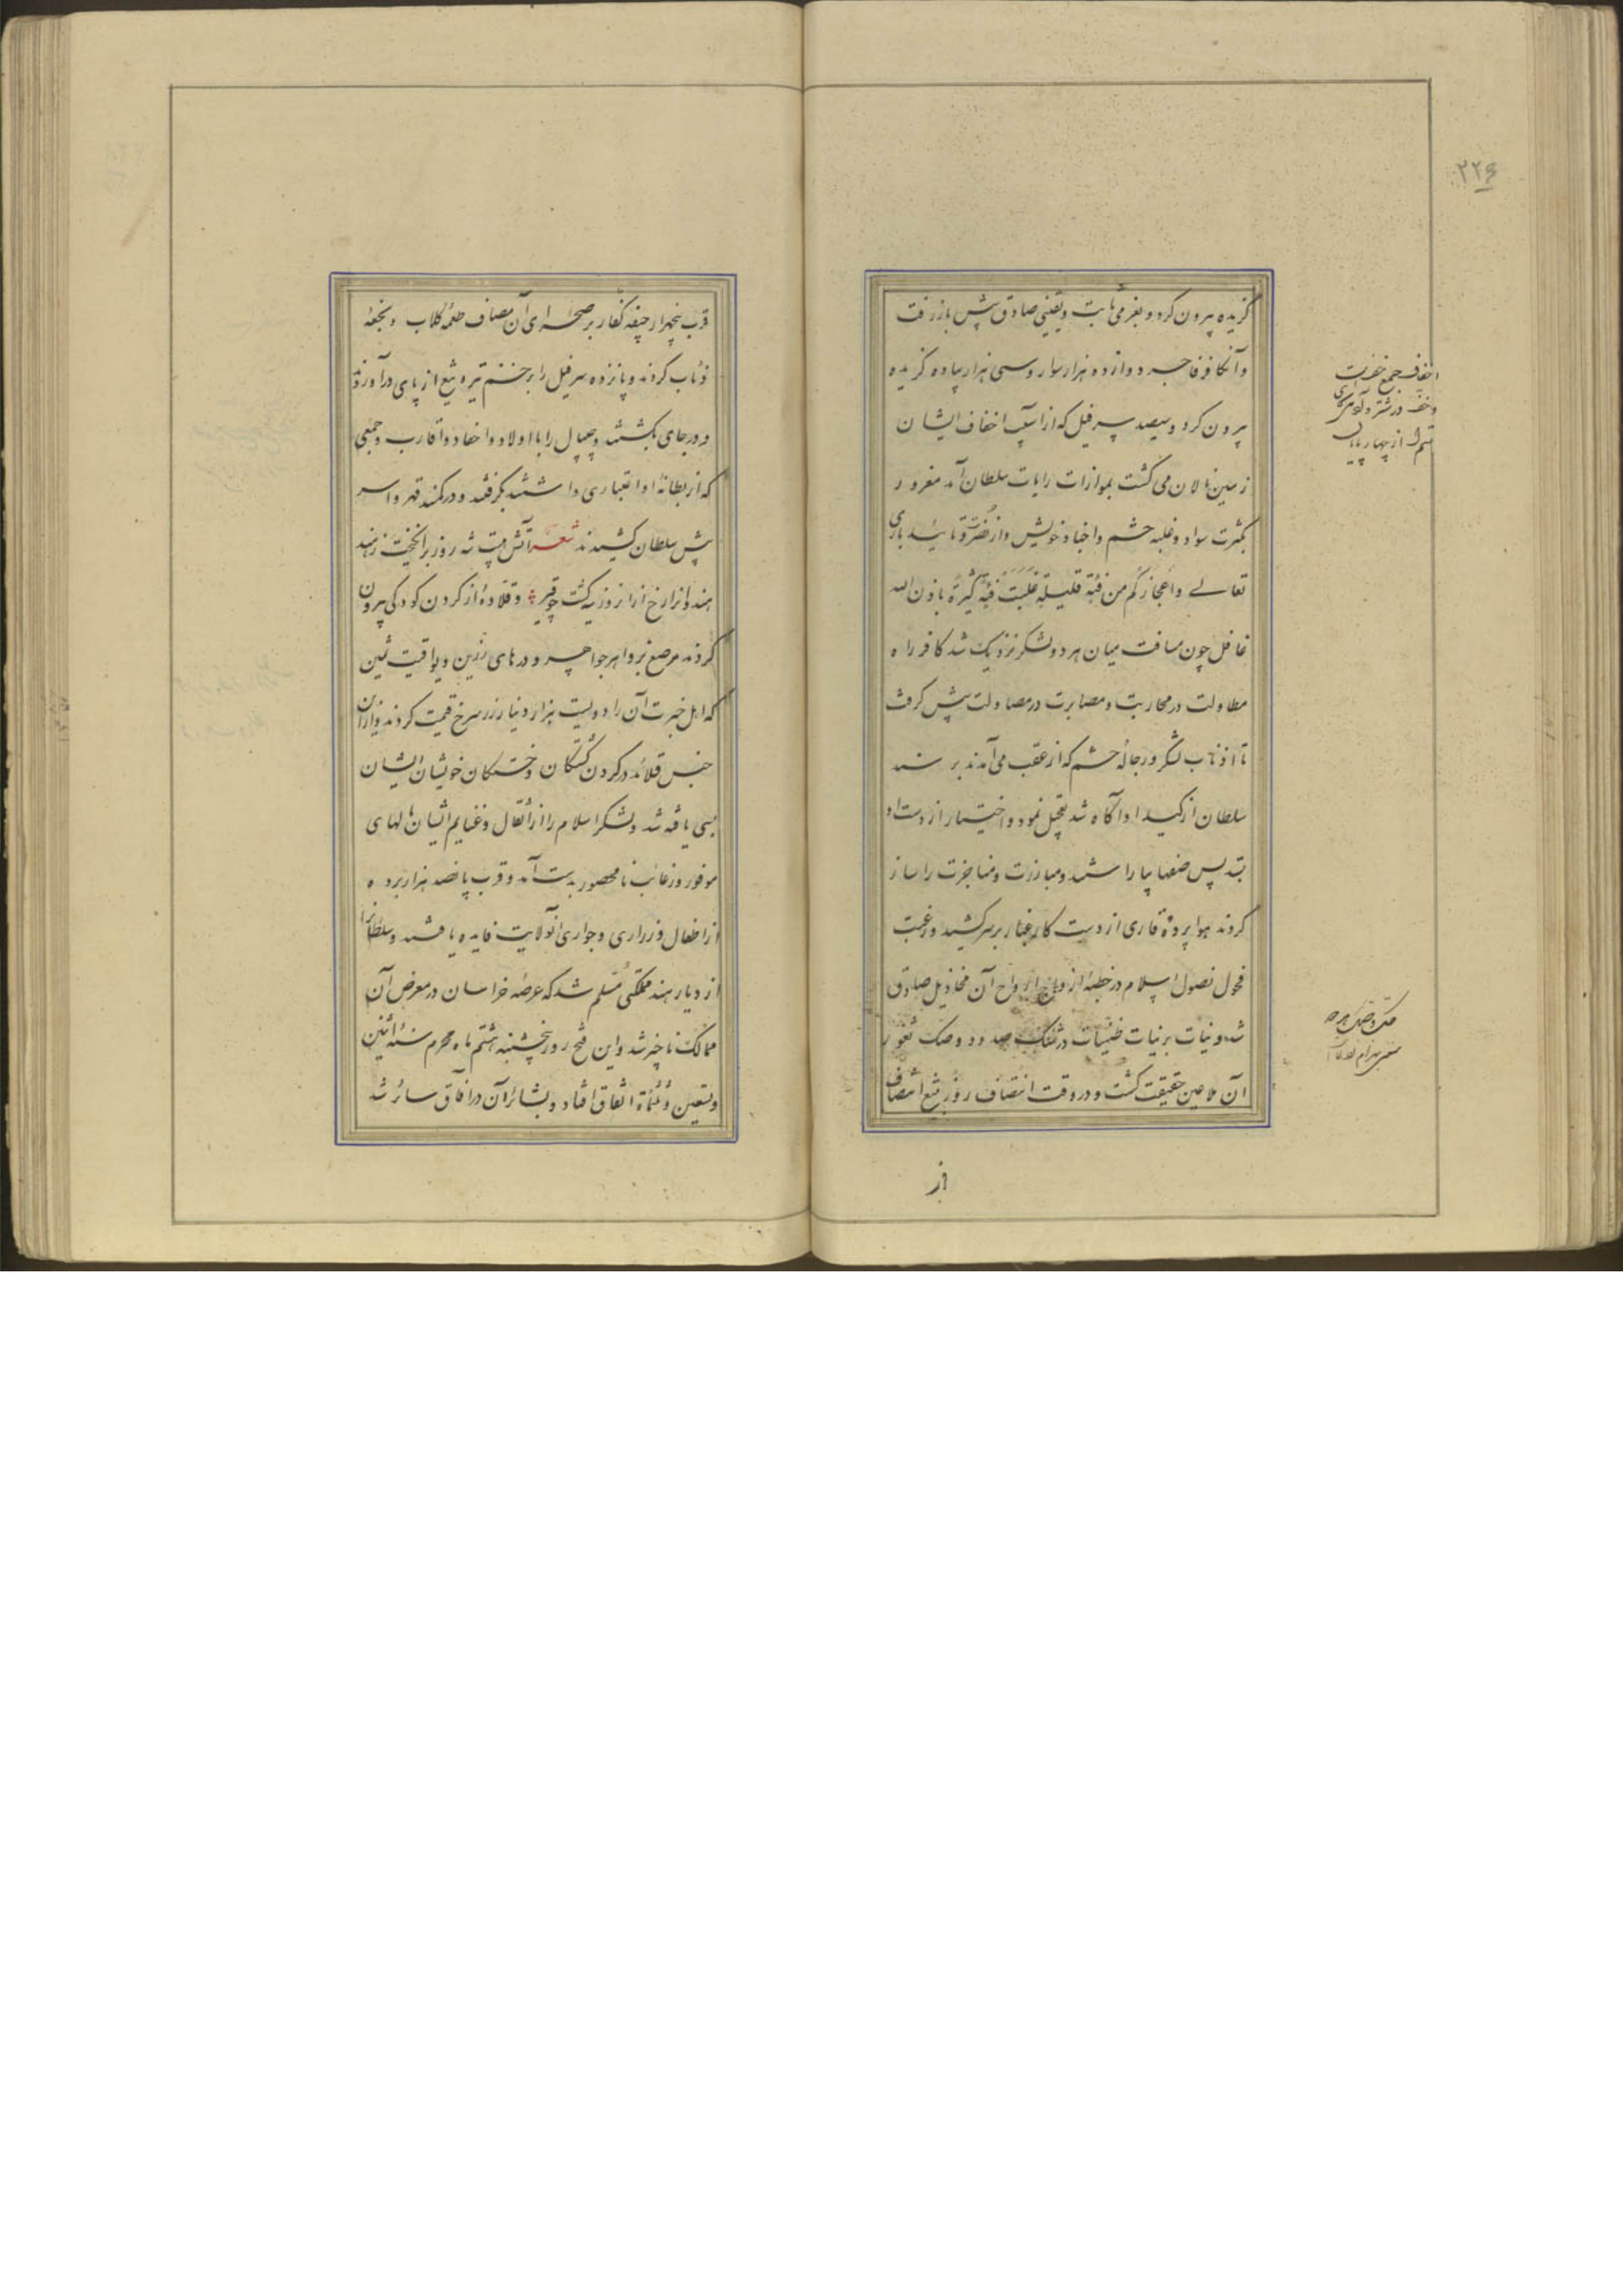 ۲۲۶
گزیده بیرون کرد و بعزمی ثابت و یقینی صادق پیش باز رفت
و آن کافر فاجر دوازده هزار سوار و سی هزار پیاده گزیده
بیرون کرد و سیصد سر فیل که از آسیب اخفاف ایشان
زمین نالان می گشت بموازات رایات سلطان آمد مغرور
بکثرت سواد و غلبه حشم و اجناد خویش و از نصرت و تایید باری
تعالے و اعجاز کم من فئة قلیلة غلبت فئة کثیرة باذن الله
غافل چون مسافت میان هر دو لشکر نزدیک شد کافر راه
مطاولت در محاربت و مصابرت در مصاولت پیش گرفت
تا اذناب لشکر و رجالهٔ حشم که از عقب می آمدند برسند
سلطان از کید او آگاه شد تعجیل نمود و اختیار از دست او
بستد پس صفها بیاراستند و مبارزت و مناجزت را ساز
کردند هوا پردهٔ قاری از دست کار غبار بر سر کشید و رغبت
فحول نصول اسلام در خطبهٔ ازدواج ارواح آن مخاذیل صادق
شد و نیات بر نیات ظنیات در هتک صدور و صک ثغور
آن ملاعین حقیقت گشت و در وقت انتصاف روز تیغ انتصاف
از
اخفاف جمع خف است
و خف در شتر و
سم از چهار پایان
قرب پنجهزار جیفه کفار بر صحرای آن مصاف طعمهٔ کلاب و نجعهٔ
ذئاب کردند و پانزده سر فیل را بزخم تیر و تیغ از پای درآوردند
و در جای بکشتند و جیپال را با اولاد و احفاد و اقارب و جمعی
که از بطانهٔ او اعتباری داشتند بگرفتند و در کمند قهر و اسر
پیش سلطان کشیدند شعر آتش هیبت شه روز برانگیخت ز هند
هندوانرا رخ از آنروز سیه گشت چو قیر و قلادهٔ از گردن کودکی بیرون
کردند مرصع بزواهر جواهر و درهای رزین و یواقیت ثمین
که اهل خبرت آن را دویست هزار دینار زر سرخ قیمت کردند و از آن
جنس قلائد در گردن کشتگان و خستگان خویشان ایشان
بسی یافته شد و لشکر اسلام را از اثقال و غنایم ایشان مالهای
موفور و رغائب نامحصور بدست آمد و قرب پانصد هزار برده
از اطفال و ذراری و جواری آن ولایت فایده یافتند و سلطانرا
از دیار هند مملکتی مسلم شد که عرصه خراسان در معرض آن
ممالک ناچیز شد و این فتح روز پنجشنبه هشتم ماه محرم سنهٔ اثنین
و تسعین و ثلثمأة اتفاق افتاد و بشائر آن در آفاق سائر شد